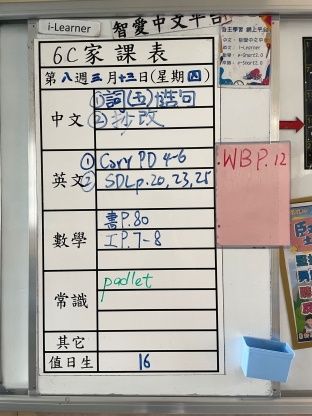 i-Learner
智愛中文平台
6C家課表
第八週三月十三日(星期四)
中文
①詞(五)造句
②抄改
英文
①Cory PD 4-6
②SDLp.20,23,25
WBP.12
數學
書P.80
工P.7-8
常識
padlet
其它
值日生
16